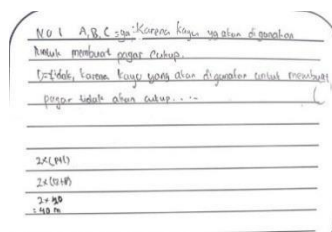 NO 1 A, B, C = ya : Karena kayu yg akan di gunakan
Untuk membuat pagar cukup.
D = tidak, karena kayu yang akan digunakan untuk membuat
pagar tidak akan cukup....
2x(P+l)
2x
2x20
= 40 m